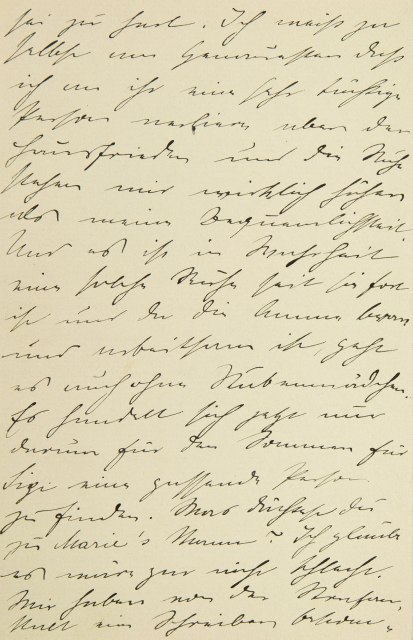 sei zu hart. Ich weiß zu
selbst am Genauesten daß
ich an ihr eine sehr tüchtige
Person verliere aber der
Hausfrieden und die Ruhe
stehen mir wirklich höher
als meine Bequemlichkeit.
Und es ist in Wahrheit
eine solche Ruhe seit sie fort
ist und da die Anna brav
und arbeitsam ist, geht
es auch ohne Stubenmädchen.
Es handelt sich jetzt nur
darum für den Sommer für
eine passende Person
zu finden. Was dächtest du
zu Marie's Mama? Ich glaube
es wäre gar nicht schlecht.
Wir haben von der
ein Schreiben